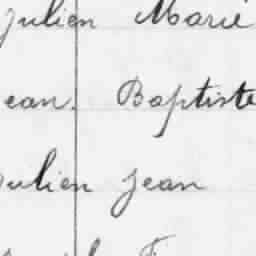 Julien Marie
Jean. Baptiste
Julien Jean